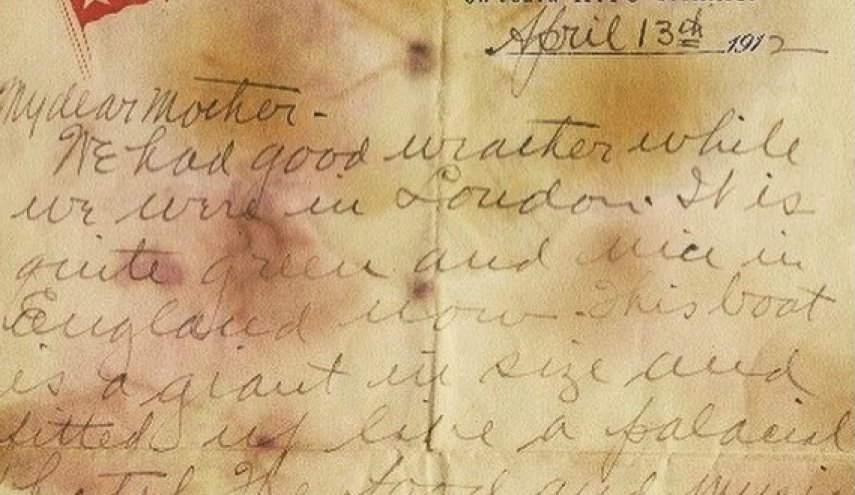 April 13th 1912
My dear Mother -
We had good weather while
we were in London. It is
quite green and nice in
England now. This boat
is a giant in size and
fitted up like a palacial
hotel. The food and music